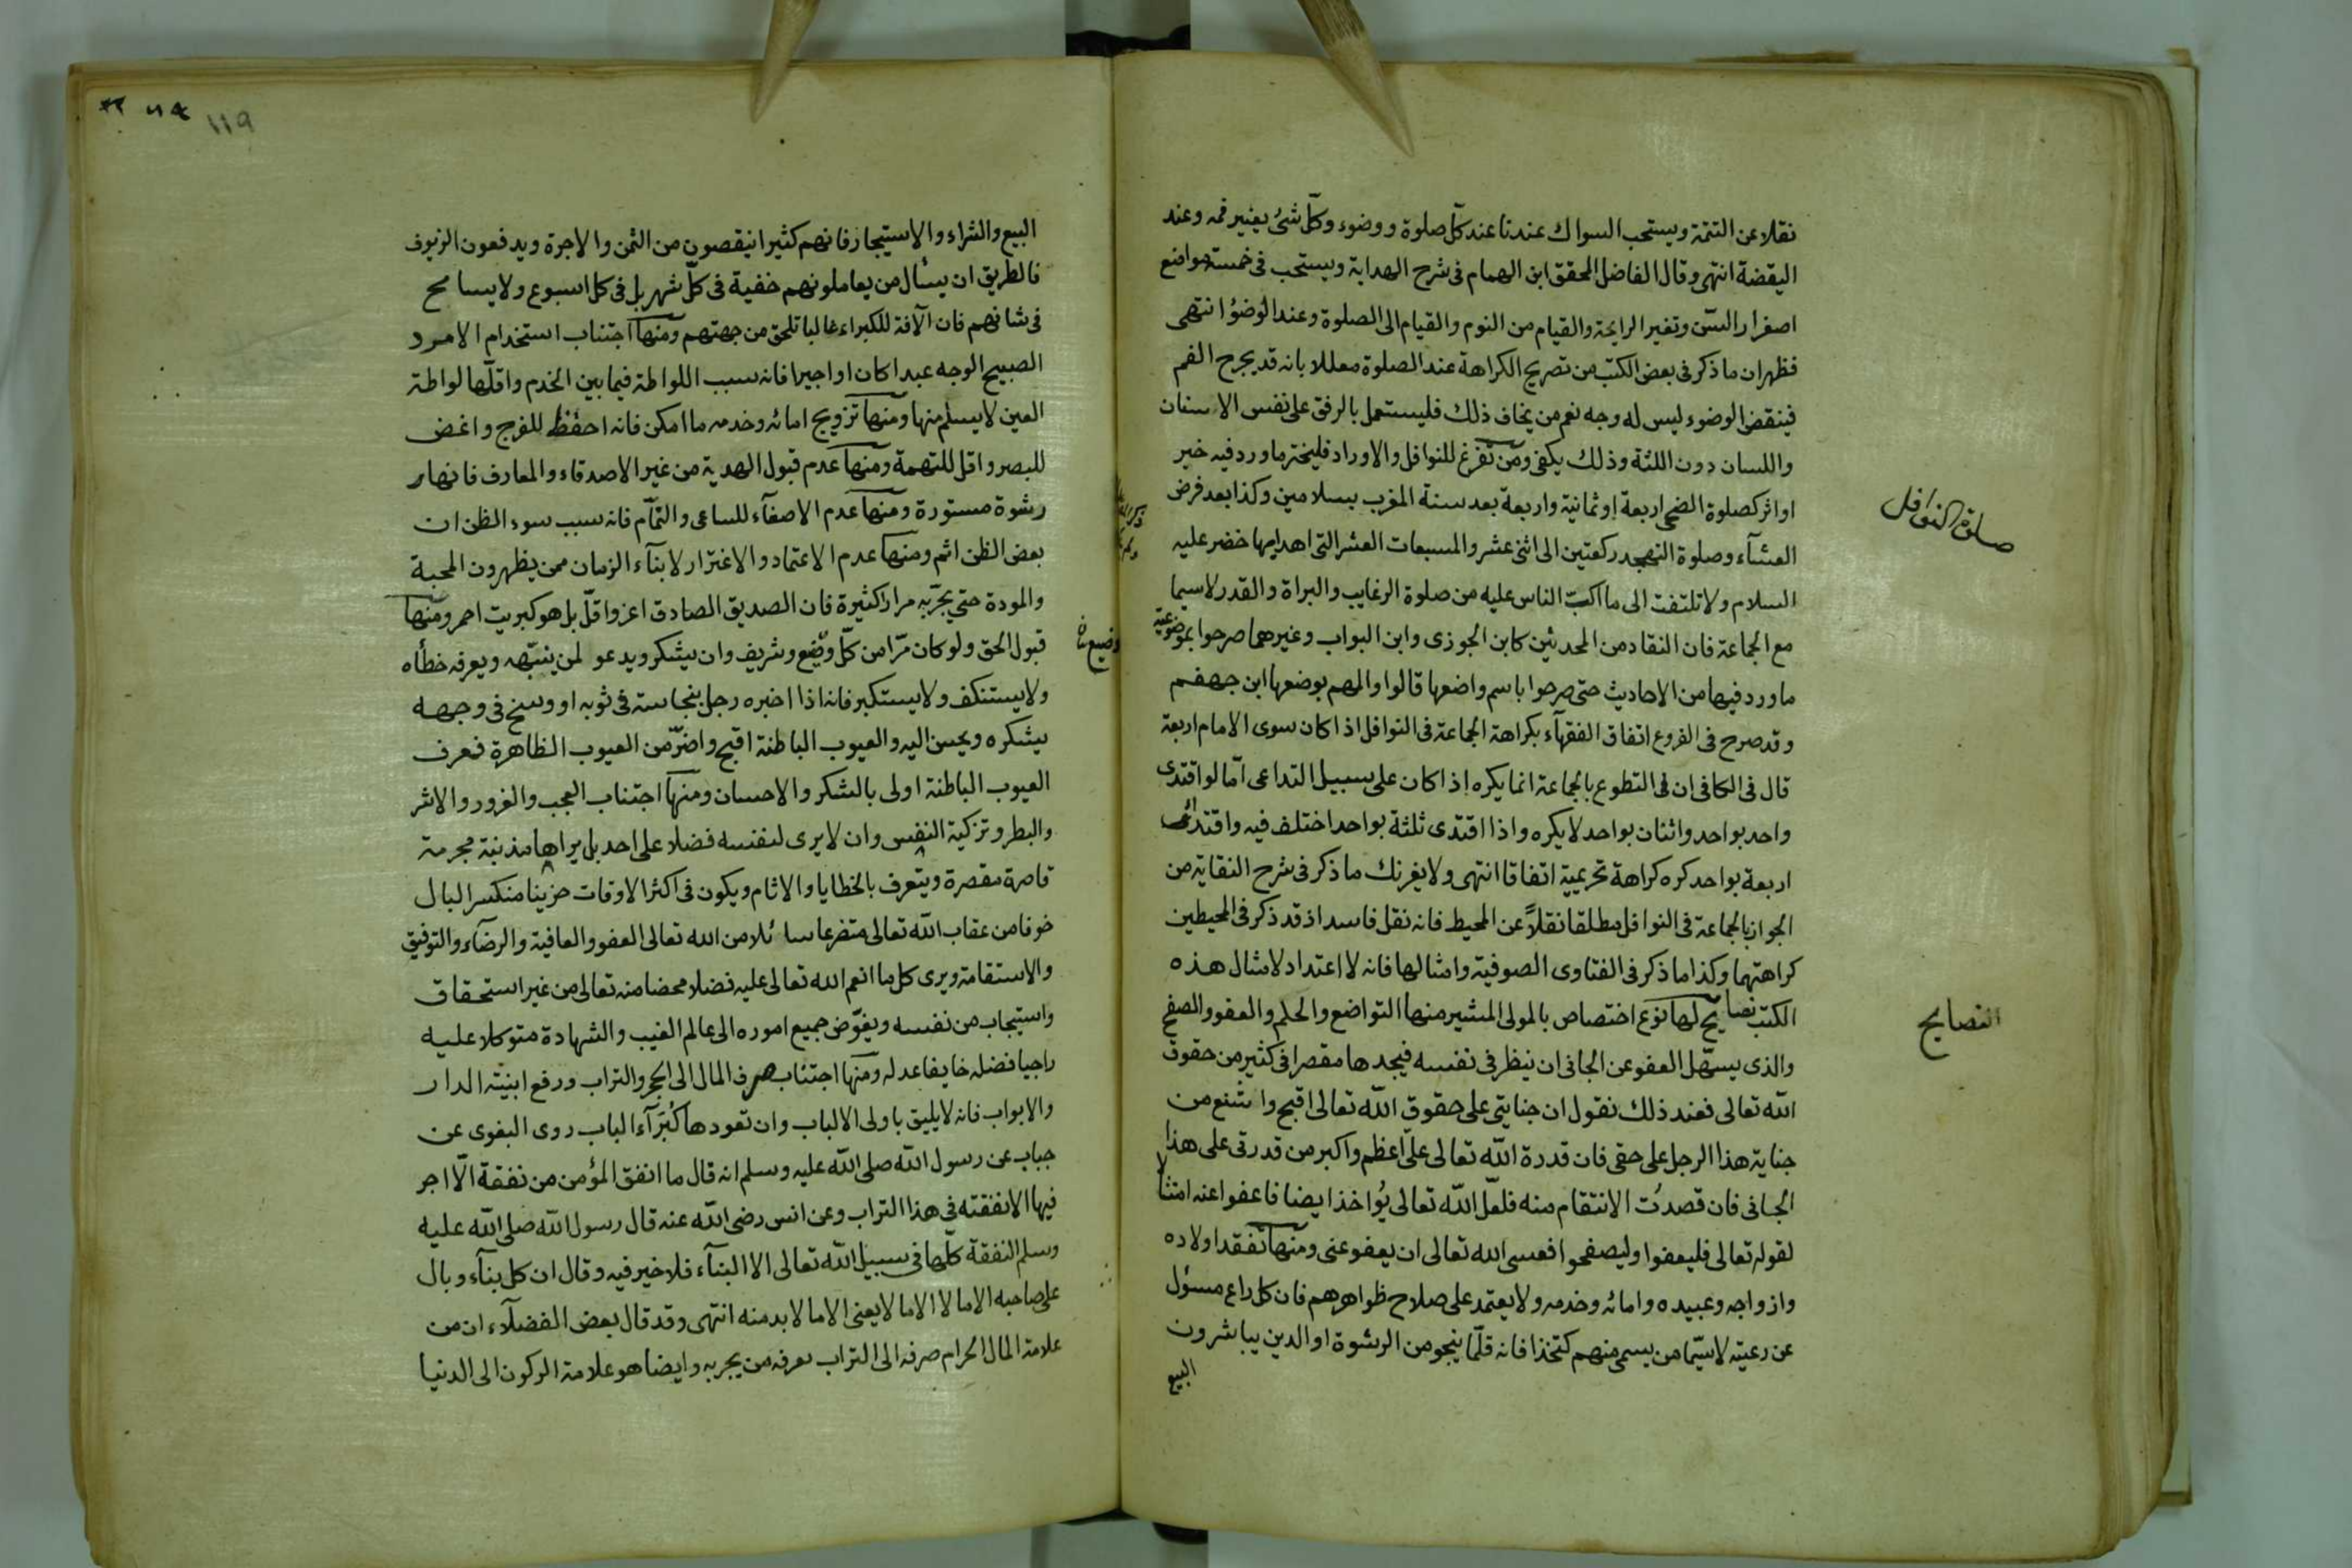 نقلا عن التتمة ويستحب السواك عندنا عند كل صلوة ووضوء وكل شئ يغير فمه وعند
اليقضة انتهى وقال الفاضل المحقق ابن الهمام فى شرح الهداية ويستحب فى خمسة مواضع
اصفرار السن وتغير الرايحة والقيام من النوم والقيام الى الصلوة وعند الوضوء انتهى
فظهر ان ما ذكر فى بعض الكتب من تصريح الكراهة عند الصلوة معللا بانه قد يجرح الفم
فينقض الوضوء ليس له وجه نعم من يخاف ذلك فليستعمل بالرفق على نفس الاسنان
واللسان دون اللثة وذلك يكفى ومن تفرغ للنوافل والاوراد فليختر ما ورد فيه خبر
صلوة النوافل
او اثر كصلوة الضحى اربعة او ثمانية واربعة بعد سنة المغرب بسلامين وكذا بعد فرض
العشآء وصلوة التهجد ركعتين الى اثنى عشر والمسبعات العشر التى اهداها خضر عليه
السلام ولا تلتفت الى ما اكب الناس عليه من صلوة الرغايب والبراة والقدر لا سيما
مع الجماعة فان النقاد من المحدثين كابن الجوزى وابن البواب وغيرهما صرحوا بموضوعية
ما ورد فيها من الاحاديث حتى صرحوا باسم واضعها قالوا والمهم بوضعها ابن جهضم
وقد صرح فى الفروع اتفاق الفقهآء بكراهة الجماعة فى النوافل اذا كان سوى الامام اربعة
قال فى الكافى ان فى التطوع بالجماعة انما يكره اذا كان على سبيل التداعى امّا لو اقتدى
واحد بواحد واثنان بواحد لا يكره واذا اقتدى ثلثة بواحد اختلف فيه واقتدى
اربعة بواحد كره كراهة تحريمية اتفاقا انتهى ولا يغرنك ما ذكر فى شرح النقاية من
الجواز بالجماعة فى النوافل مطلقا نقلاً عن المحيط فانه نقل فاسد اذ قد ذكر فى المحيطين
كراهتها وكذا ما ذكر فى الفتاوى الصوفية وامثالها فانه لا اعتداد لامثال هذه
النصايح
الكتب نصايح لها نوع اختصاص بالمولى المشير منها التواضع والحلم والعفو والصفح
والذى يسهّل العفو عن الجانى ان ينظر فى نفسه فيجدها مقصرا فى كثير من حقوق
الله تعالى فعند ذلك نقول ان جنايتى على حقوق الله تعالى اقبح واشنع من
جناية هذا الرجل على حقى فان قدرة الله تعالى علىّ اعظم واكبر من قدرتى على هذا
الجانى فان قصدت الانتقام منه فلعل الله تعالى يؤاخذ ايضا فاعفوا عنه امتثالا
لقوله تعالى فليعفوا وليصفحوا فعسى الله تعالى ان يعفو عنى ومنها تفقد اولاده
وازواجه وعبيده وامائه وخدمه ولا يعتمد على صلاح ظواهرهم فان كل راع مسؤل
عن رعيته لا سيّما من يسمى منهم كتخذا فانه قلّما ينجو من الرشوة او الدين يباشرون
البيع
119
البيع والشراء والاستيجار فانهم كثيرا ينقصون من الثمن والاجرة ويدفعون الزيوف
فالطريق ان يسأل من يعاملونهم خفية فى كلّ شهر بل فى كل اسبوع ولا يسامح
فى شانهم فان الآفة للكبراء غالبا تلحق من جهتهم ومنها اجتناب استخدام الامرد
الصبيح الوجه عبدا كان او اجيرا فانه سبب اللواطة فيما بين الخدم واقلّها لواطة
العين لا يسلم منها ومنها تزويج امائه وخدمه ما امكن فانه احفظ للفرج واغض
للبصر واقل للتهمة ومنها عدم قبول الهدية من غير الاصدقاء والمعارف فانها
رشوة مستورة ومنها عدم الاصغآء للساعى والنمّام فانه سبب سوء الظن ان
بعض الظن اثم ومنها عدم الاعتماد والاغترار لابنآء الزمان ممن يظهرون المحبة
والمودة حتى يجرّبه مرارا كثيرة فان الصديق الصادق اعز واقلّ بل هو كبريت احمر ومنها
قبول الحق ولو كان مرّا من كلّ وضيع وشريف وان يشكر ويدعو لمن ينبّهه ويعرفه خطأه
وضيع
ولا يستنكف ولا يستكبر فانه اذا اخبره رجل بنجاسة فى ثوبه او وسخ فى وجهه
يشكره ويحسن اليه والعيوب الباطنة اقبح واضرّ من العيوب الظاهرة فعرف
العيوب الباطنة اولى بالشكر والاحسان ومنها اجتناب العجب والغرور والاشر
والبطر وتزكية النفس وان لا يرى لنفسه فضلا على احد بل يراها مذنبة مجرمة
قاصرة مقصرة ويتعرف بالخطايا والاثام ويكون فى اكثر الاوقات حزينا منكسر البال
خوفا من عقاب الله تعالى متضرعا سائلا من الله تعالى العفو والعافية والرضآء والتوفيق
والاستقامة ويرى كل ما انعم الله تعالى عليه فضلا محضا منه تعالى من غير استحقاق
واستيجاب من نفسه ويفوّض جميع اموره الى عالم الغيب والشهادة متوكلا عليه
راجيا فضله خايفا عدله ومنها اجتناب صرف المال الى الحجر والتراب ورفع ابنية الدار
والابواب فانه لا يليق باولى الالباب وان تعودها كُبَرآء الباب روى البغوى عن
جباب عن رسول الله صلى الله عليه وسلم انه قال ما انفق المؤمن من نفقة الّا اجر
فيها الا نفقته فى هذا التراب وعن انس رضى الله عنه قال رسول الله صلى الله عليه
وسلم النفقة كلّها فى سبيل الله تعالى الا البنآء فلا خير فيه وقال ان كل بنآء وبال
على صاحبه الا ما لا الا ما لا يعنى الا ما لا بد منه انتهى وقد قال بعض الفضلآء ان من
علامة المال الحرام صرفه الى التراب يعرفه من يجربه وايضا هو علامة الركون الى الدنيا